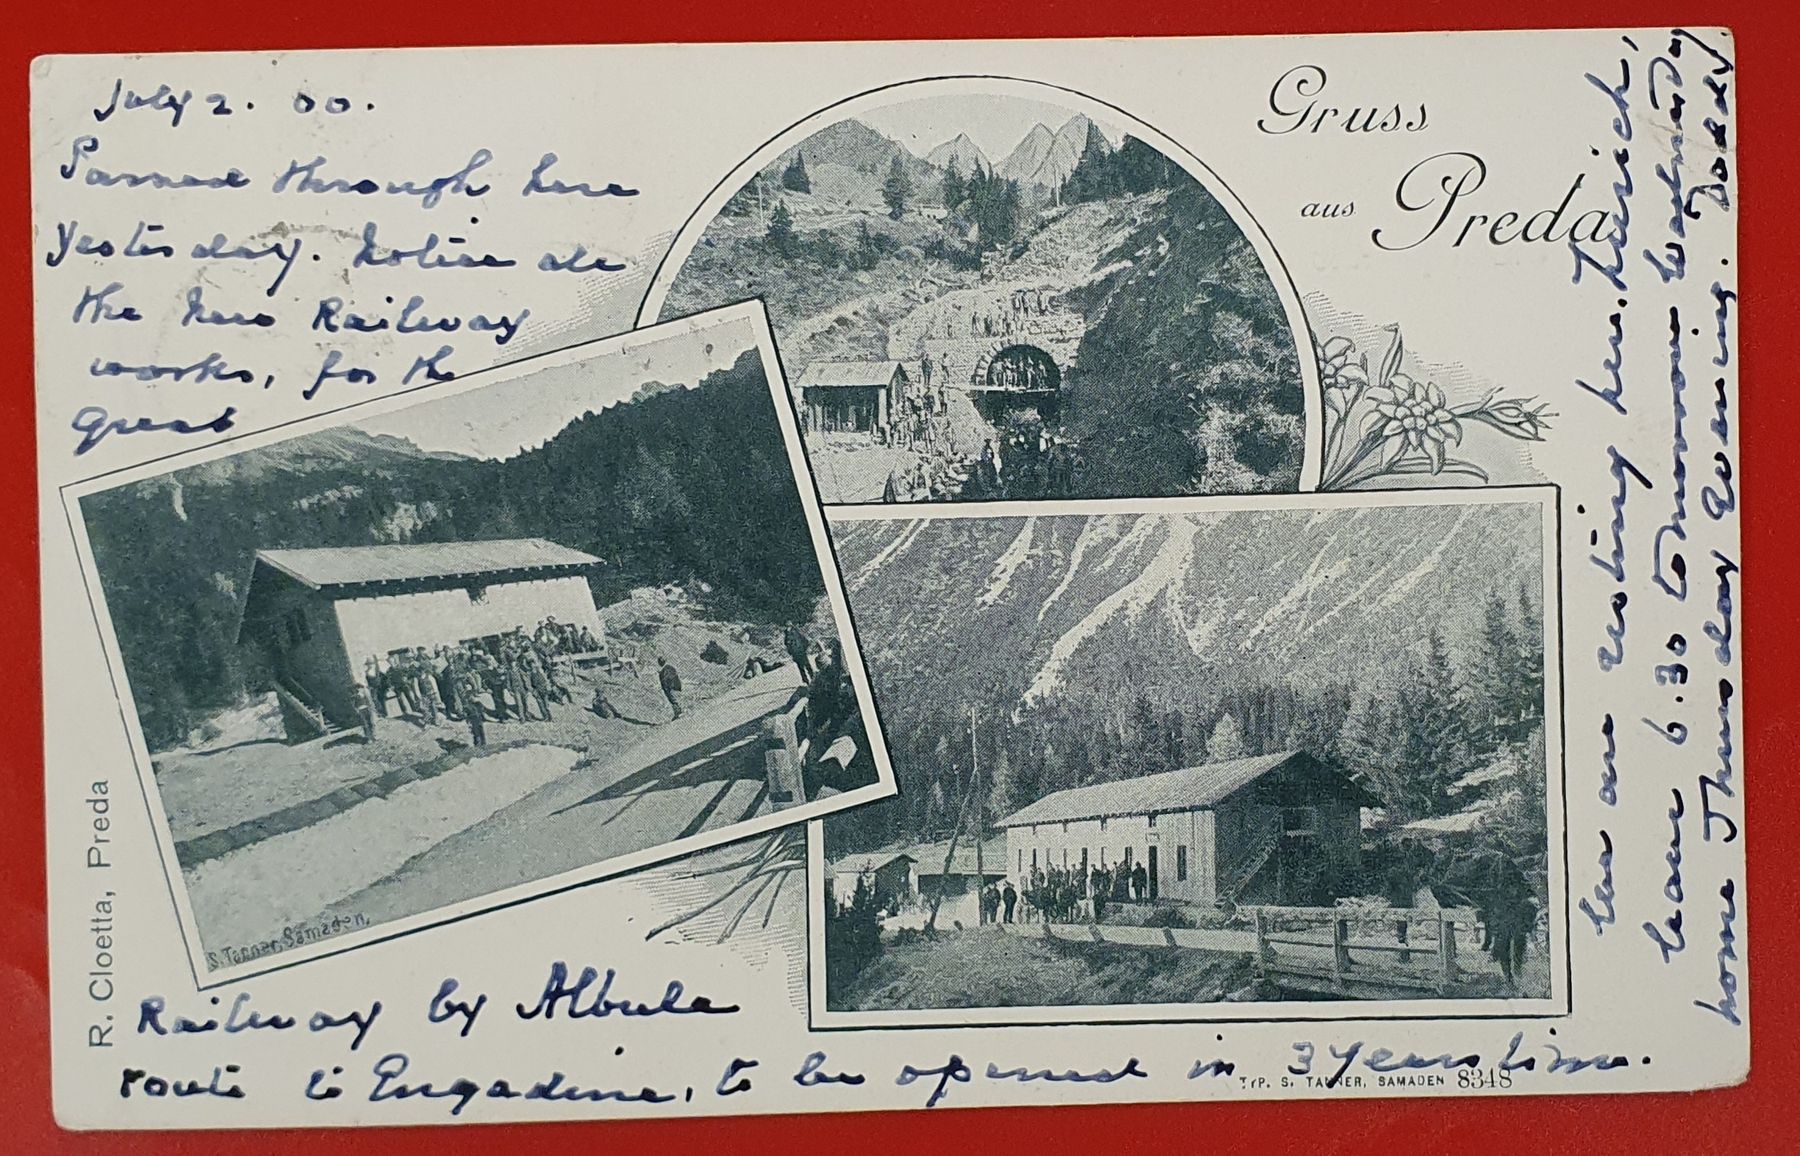 July 2. 00.
Passed through here
yesterday. Notice all
the new Railway
works, for the
great
Railway by Albula
route to Engadine, to be opened in 3 years time.
We are resting here. Zürich,
leave 6.30 tomorrow Wednesday
home Thursday Evening. Daddy.
Gruss
aus Preda
S. Tanner, Samaden,
R. Cloetta, Preda
TYP. S. TANNER, SAMADEN 8348